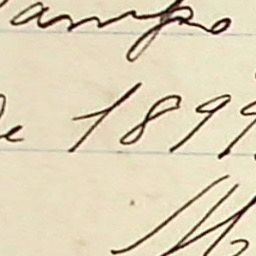 campo
de 1899